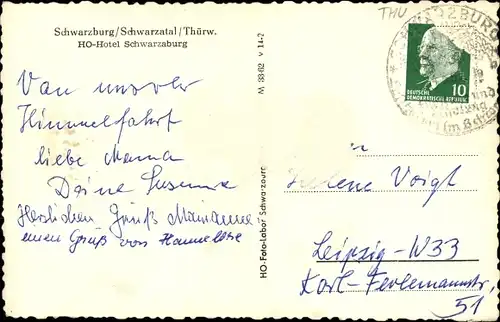 Schwarzburg/Schwarzatal/Thürw.
HO-Hotel Schwarzaburg
Von unserer
Himmelfahrt
liebe Mama
Deine Susanne
Herzlichen Gruß Marianne
einen Gruß von Hannelore
M 33-62 v 14-2
HO-Foto-Labor Schwarzburg
THU
SCHWARZBURG
DEUTSCHE
DEMOKRATISCHE REPUBLIK
10
Helene Voigt
Leipzig-W33
Karl-Ferlemannstr.
51